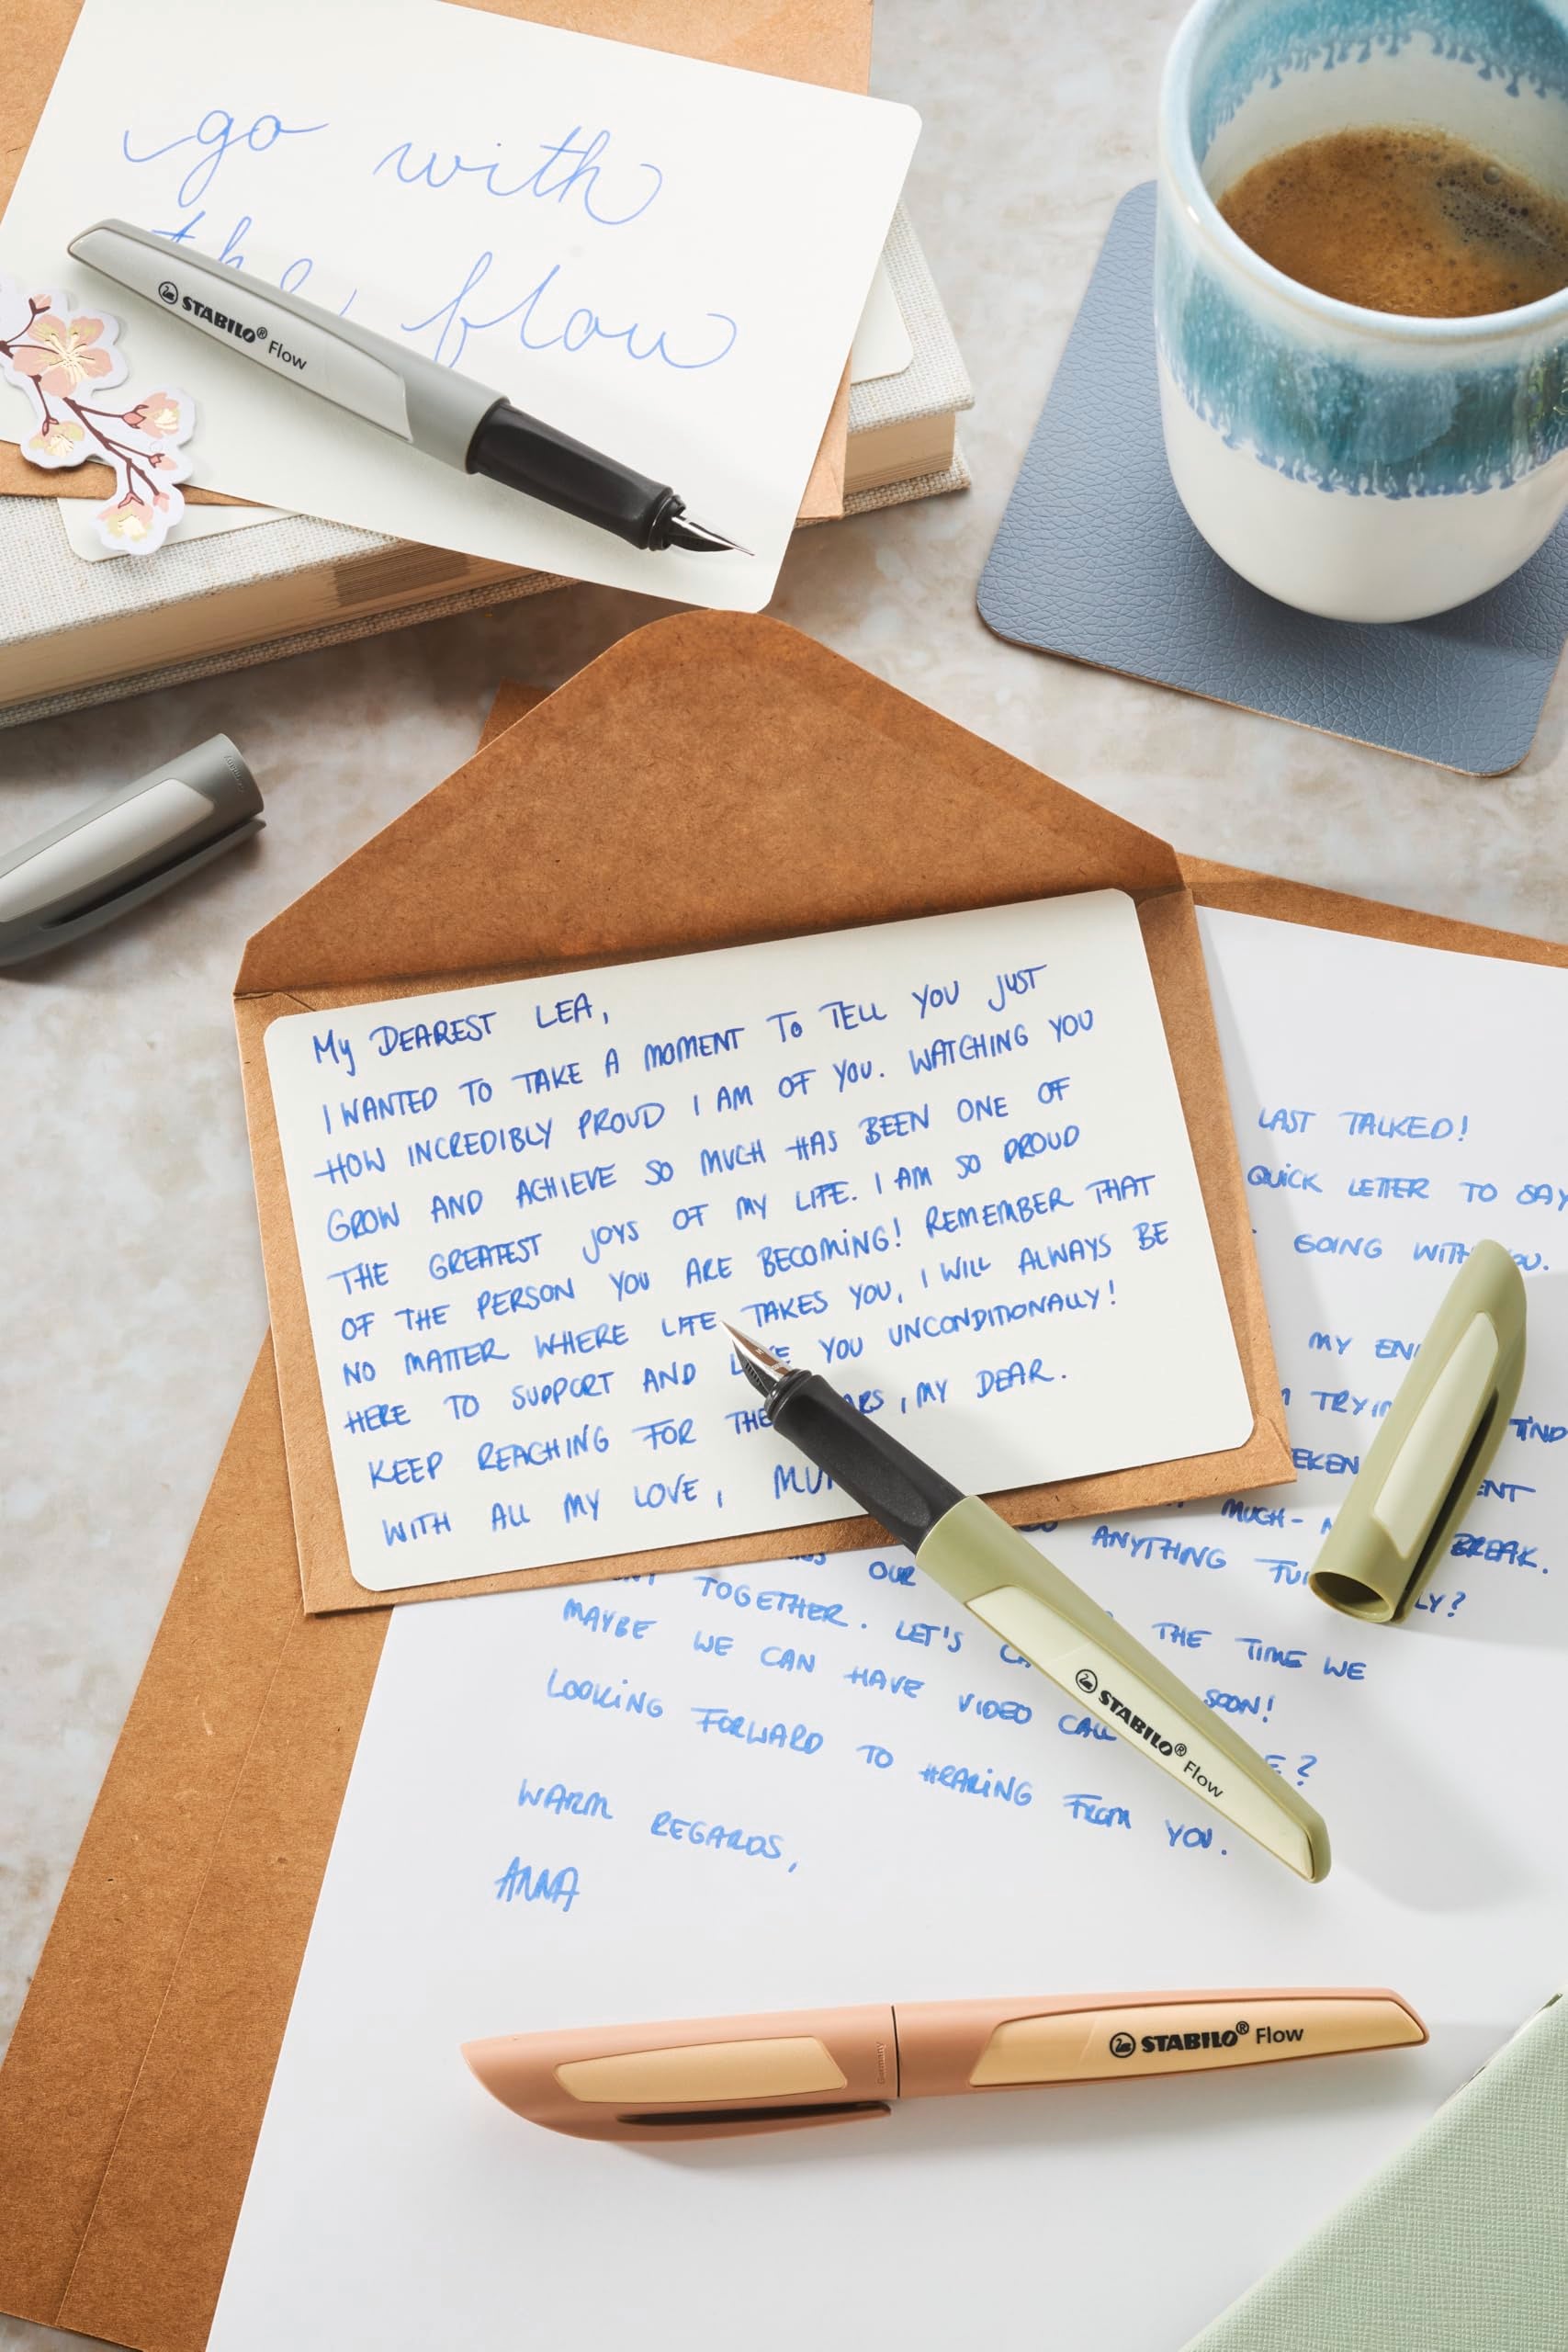 go with
the flow
STABILO® Flow
My DEAREST LEA,
I WANTED TO TAKE A MOMENT TO TELL YOU JUST
HOW INCREDIBLY PROUD I AM OF YOU. WATCHING YOU
GROW AND ACHIEVE SO MUCH HAS BEEN ONE OF
THE GREATEST JOYS OF MY LIFE. I AM SO PROUD
OF THE PERSON YOU ARE BECOMING! REMEMBER THAT
NO MATTER WHERE LIFE TAKES YOU, I WILL ALWAYS BE
HERE TO SUPPORT AND YOU UNCONDITIONALLY!
KEEP REACHING FOR THE , MY DEAR.
WITH ALL MY LOVE,
LAST TALKED!
QUICK LETTER TO SAY
GOING WITH
MY
MUCH- BREAK.
ANYTHING
OUR
TOGETHER. LET'S THE TIME WE
MAYBE WE CAN HAVE VIDEO CALL SOON!
LOOKING FORWARD TO HEARING FROM YOU.
WARM REGARDS,
ANNA
STABILO® Flow
STABILO® Flow
Germany